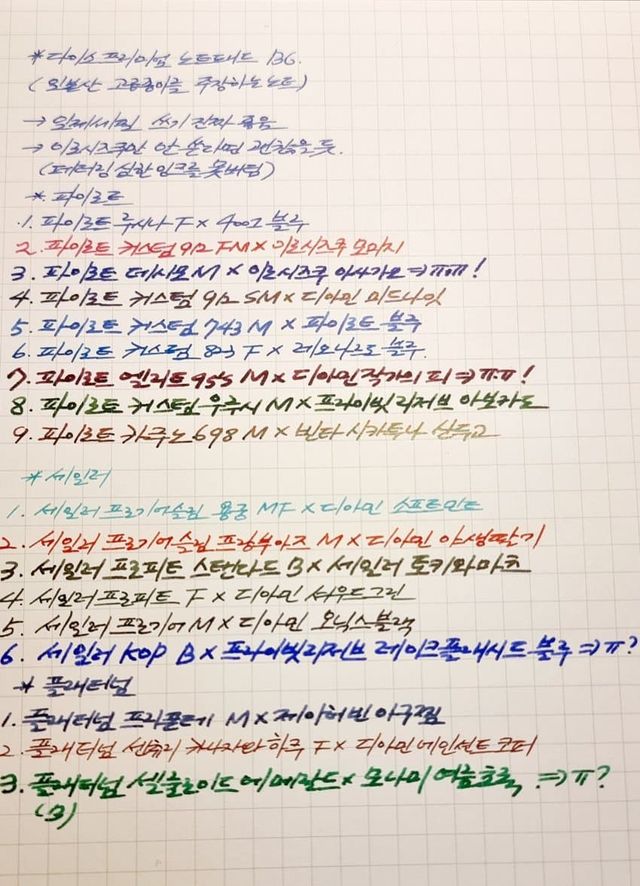 * 다이소 프리미엄 노트패드 B6.
(일본산 고급종이를 주장하는 노트)
→ 일제세필 쓰기 진짜 좋음
→ 이로시즈쿠만 안 쓴다면 괜찮을 듯.
(페더링 심한 잉크를 못버팀)
* 파이로트
1. 파이로트 루시나 F × 4001 블루
2. 파이로트 커스텀 912 FM × 이로시즈쿠 모미지
3. 파이로트 데시모 M × 이로시즈쿠 아사가오 ⇒ ㅠㅠ!
4. 파이로트 커스텀 912 SM × 디아민 미드나잇
5. 파이로트 커스텀 743 M × 파이로트 블루
6. 파이로트 커스텀 823 F × 레오나르도 블루.
7. 파이로트 엘리트 95s M × 디아민 작가의 피 ⇒ ㅠㅠ!
8. 파이로트 커스텀 우루시 M × 프라이빗 리저브 아보카도
9. 파이로트 카쿠노 698 M × 빈타 시카투나 산두고
* 세일러
1. 세일러 프로기어슬림 용궁 MF × 디아민 소프트민트
2. 세일러 프로기어 슬림 프랑부아즈 M × 디아민 야생딸기
3. 세일러 프로피트 스탠다드 B × 세일러 토키와마츠
4. 세일러 프로피트 F × 디아민 셔우드그린
5. 세일러 프로기어 M × 디아민 오닉스블랙
6. 세일러 KOP B × 프라이빗리저브 레이크플래시드 블루 ⇒ ㅠ?
* 플래티넘
1. 플래티넘 프리폴테 M × 제이허빈 아구찜
2. 플래티넘 센츄리 카나자와 하쿠 F × 디아민 에인션트 코퍼
3. 플래티넘 셀룰로이드 에메랄드 × 모나미 여름초록, ⇒ ㅠ?
(B)